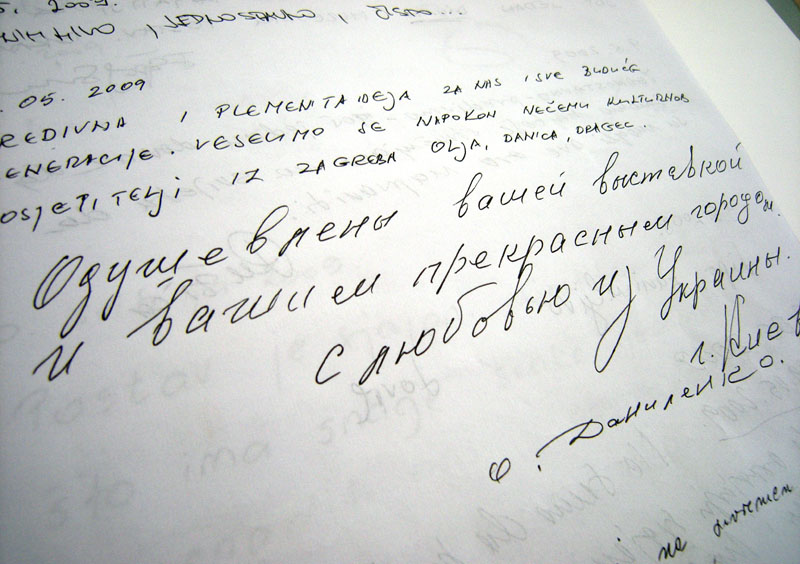 2009.
NIHILNO, JEDNOSTAVNO,
05. 2009
REDIVNA I PLEMENITA IDEJA ZA NAS I SVE BUDUĆE
ENERACIJE. VESELIMO SE NAPOKON NEČEMU KULTURNOG
OSJETITELJI IZ ZAGREBA OLJA, DANICA, DRAGEC.
Одушевлены вашей выставкой
и вашим прекрасным городом.
С любовью из Украины.
г. Киев
О. Даниленко.